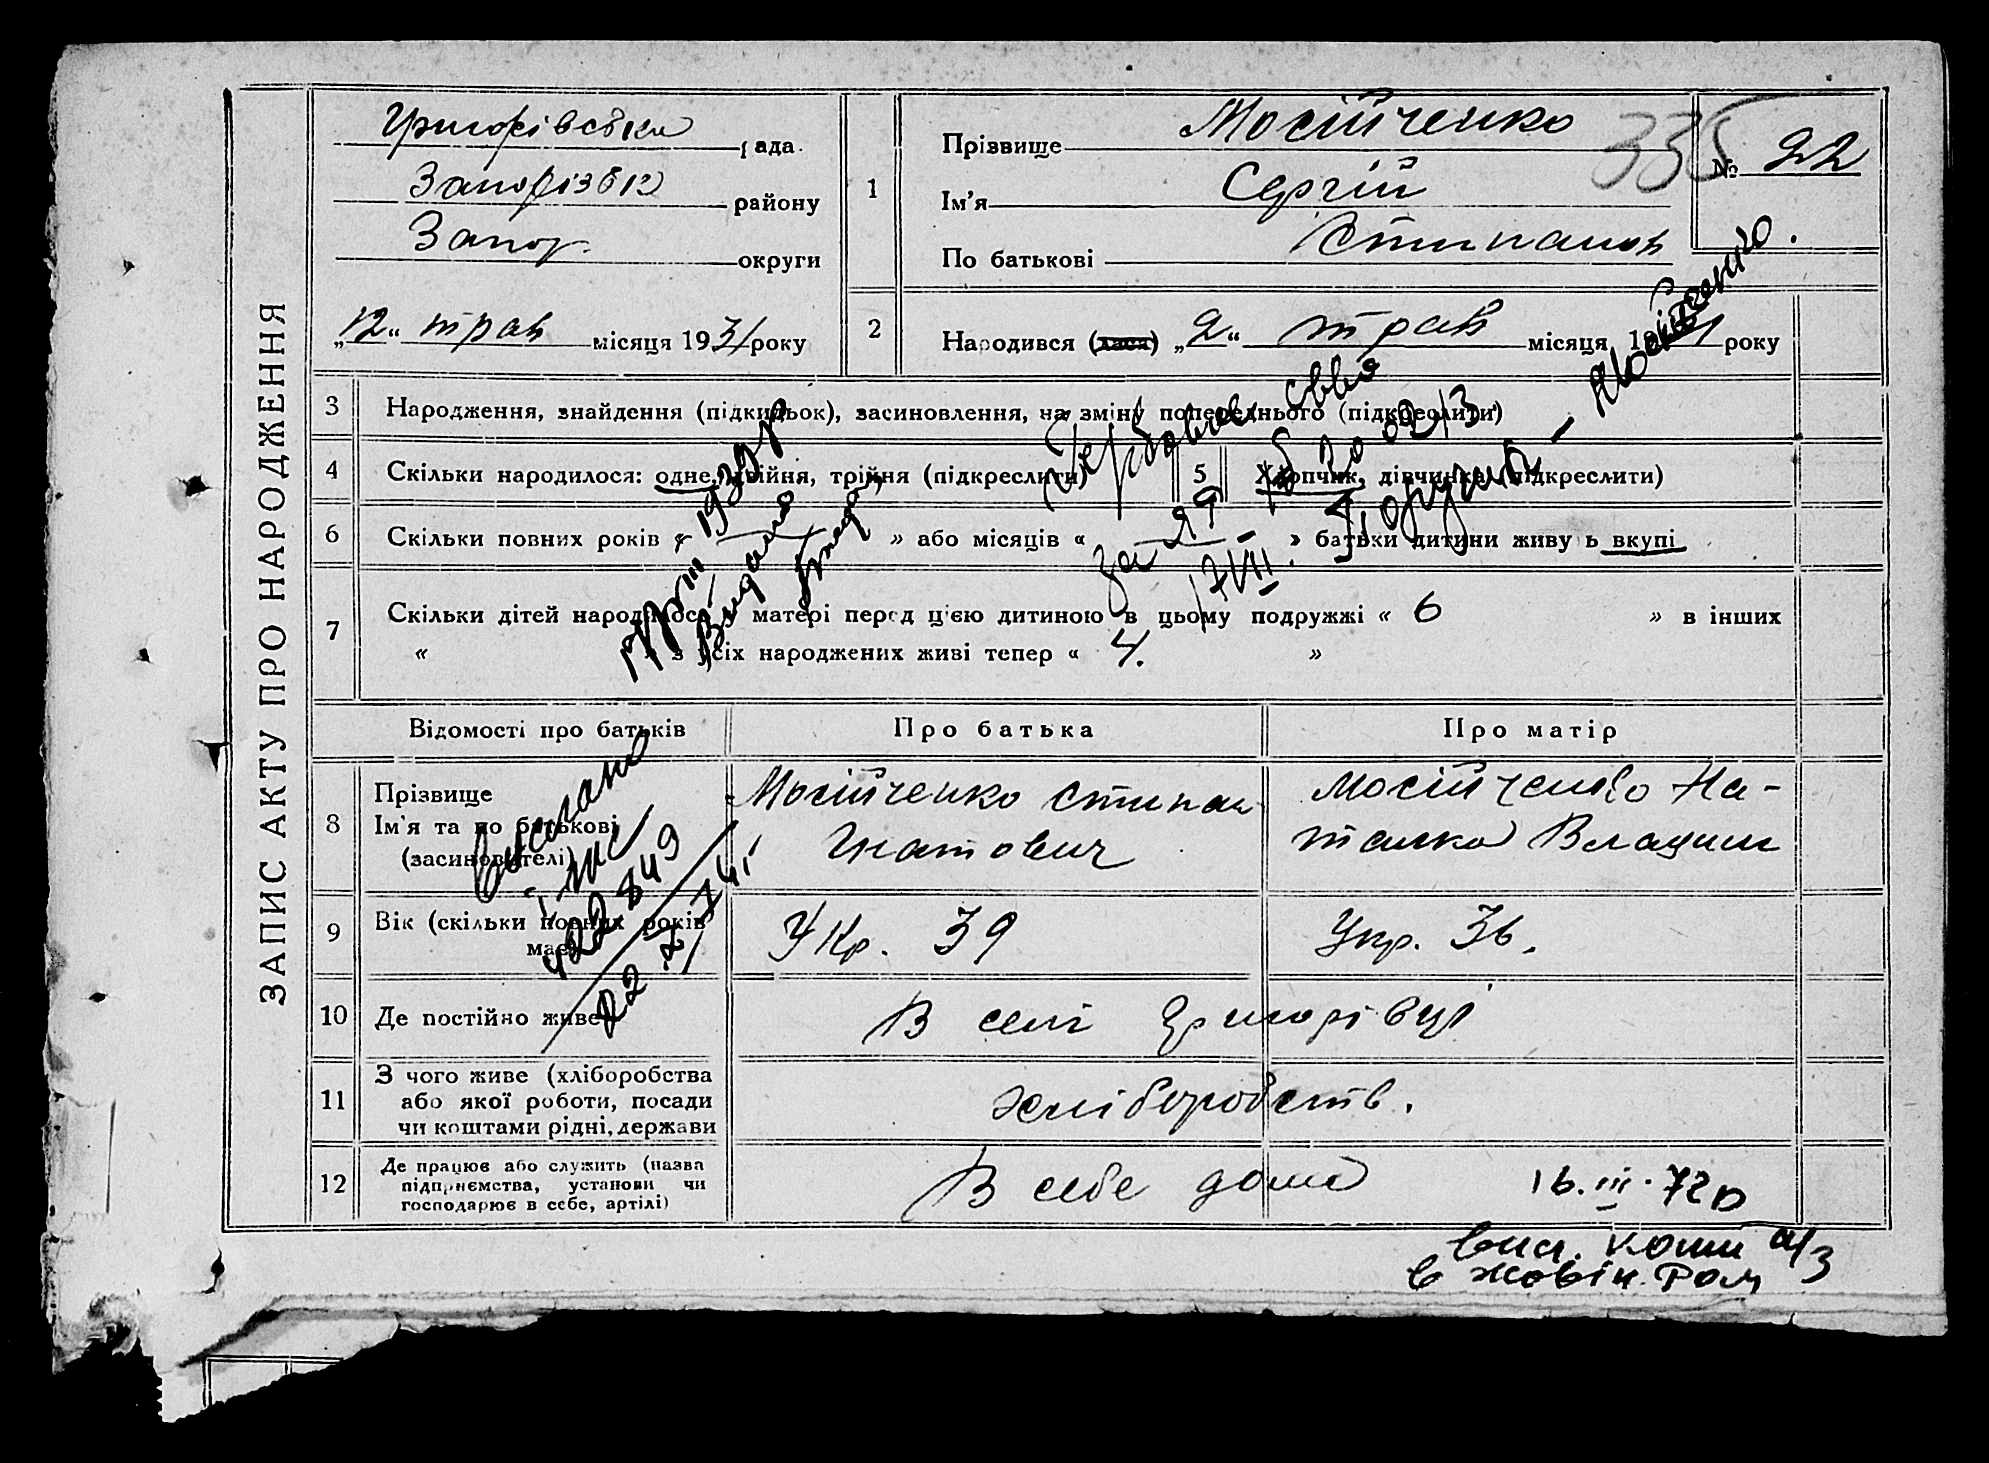 ЗАПИС АКТУ ПРО НАРОДЖЕННЯ
Григорівська рада
Запорізьк району
Запор. округи
„12“ трав місяця 1931 року
1
Прізвище Мосійченко
Ім'я Сергій
По батькові Степанов
335
№ 22
2
Народився (лася) „2“ трав місяця 1931 року
3 Народження, знайдення (підкидьок), засиновлення, на зміну попереднього (підкреслити)
4 Скільки народилося: одне, двійня, трійня (підкреслити) 5 Хлопчик, дівчинка (підкреслити)
6 Скільки повних років « — » або місяців « — » батьки дитини живуть вкупі
7 Скільки дітей народилося у матері перед цією дитиною в цьому подружжі « 6 » в інших
« » з усіх народжених живі тепер « 4. »
Відомості про батьків Про батька Про матір
8
Прізвище
Ім'я та по батькові
(засиновителі)
Мосійченко Степан
Гнатович
Мосійченко На-
талка Владим
9
Вік (скільки повних років
має)
Укр. 39
Укр. 36.
10 Де постійно живе В селі Григорівці
11
З чого живе (хліборобства
або якої роботи, посади
чи коштами рідні, держави
хліборобств.
12
Де працює або служить (назва
підприємства, установи чи
господарює в себе, артілі)
В себе дома
16.III.72р
вид. копи
в Жовтн. Рай
1939 р
Видано
Гербовое свво
за
17/VII
- Мосійченко.
Выслано
422849
22.X 74г